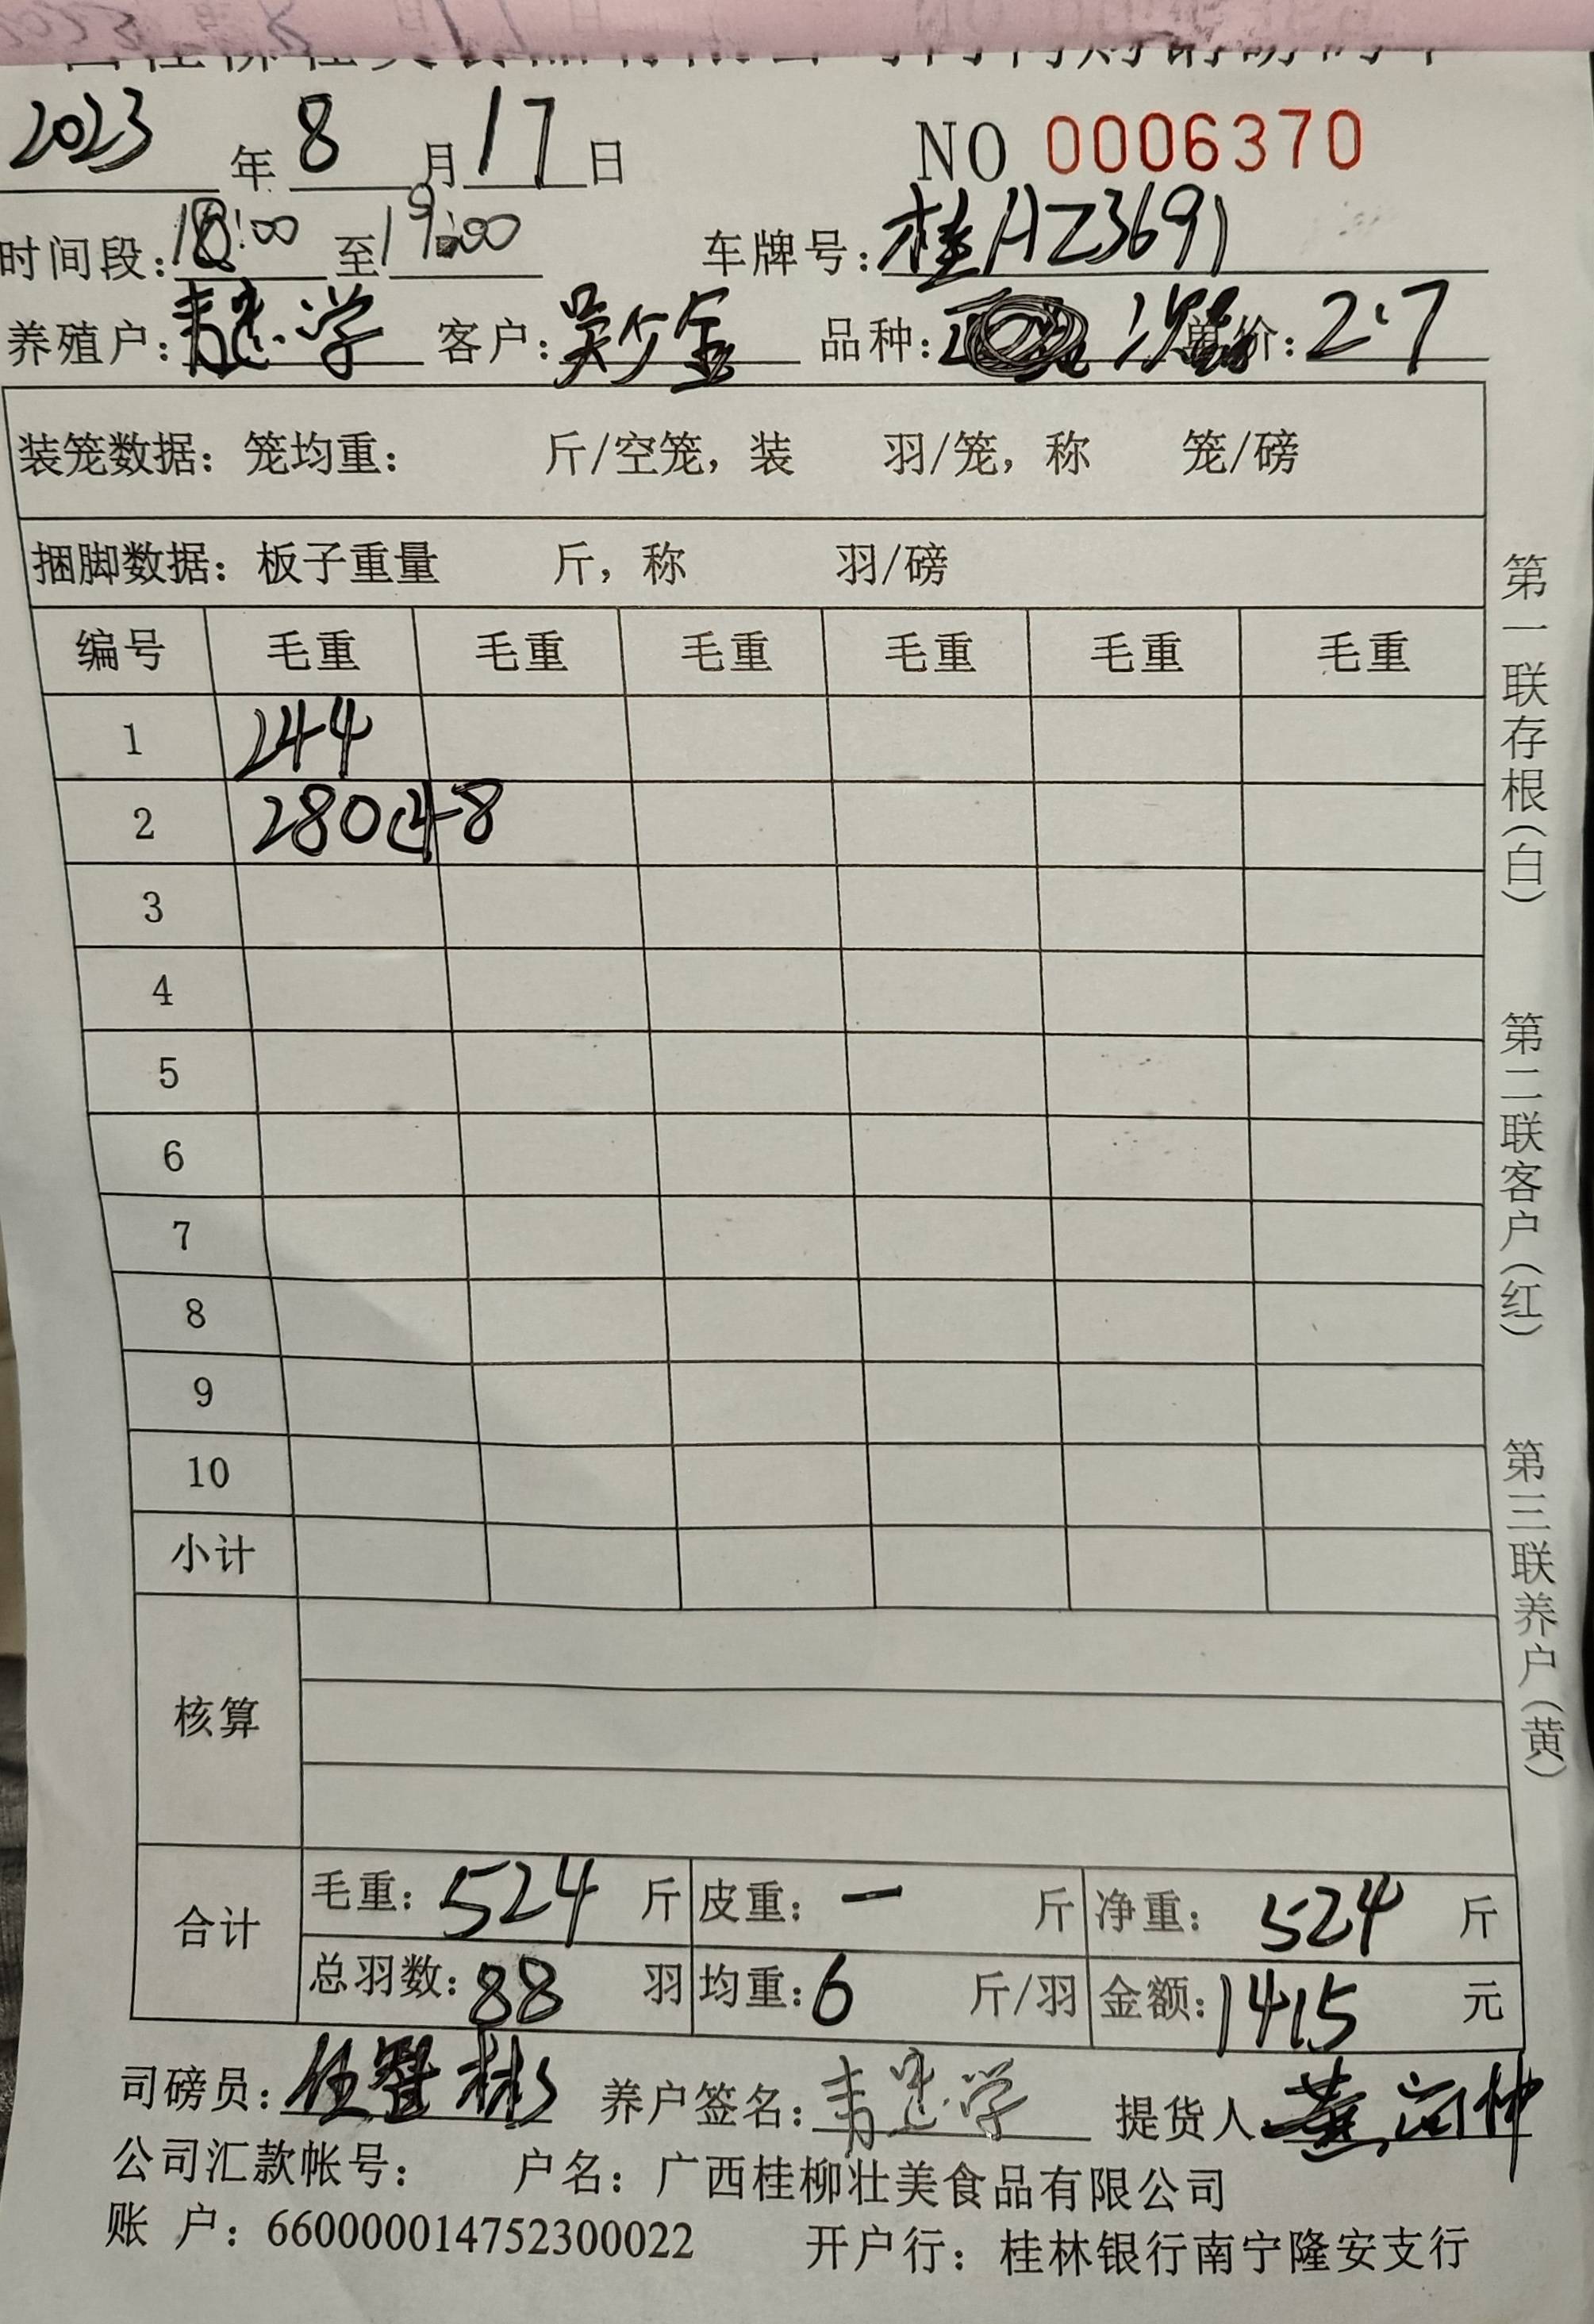 2023 年 8 月 17 日 NO 0006370
时间段: 18:00 至 19:00 车牌号: 桂AZ3691
养殖户: 学 客户: 吴少金 品种: 单价: 2.7
装笼数据: 笼均重: 斤/空笼, 装 羽/笼, 称 笼/磅
捆脚数据: 板子重量 斤, 称 羽/磅
编号 毛重 毛重 毛重 毛重 毛重 毛重
1 244
2 280 8
3
4
5
6
7
8
9
10
小计
核算
合计 毛重: 524 斤 皮重: 一 斤 净重: 524 斤
总羽数: 88 羽 均重: 6 斤/羽 金额: 1415 元
司磅员: 彬 养户签名: 学 提货人 黄
公司汇款帐号: 户名: 广西桂柳壮美食品有限公司
账 户: 660000014752300022 开户行: 桂林银行南宁隆安支行
第一联存根(白) 第二联客户(红) 第三联养户(黄)